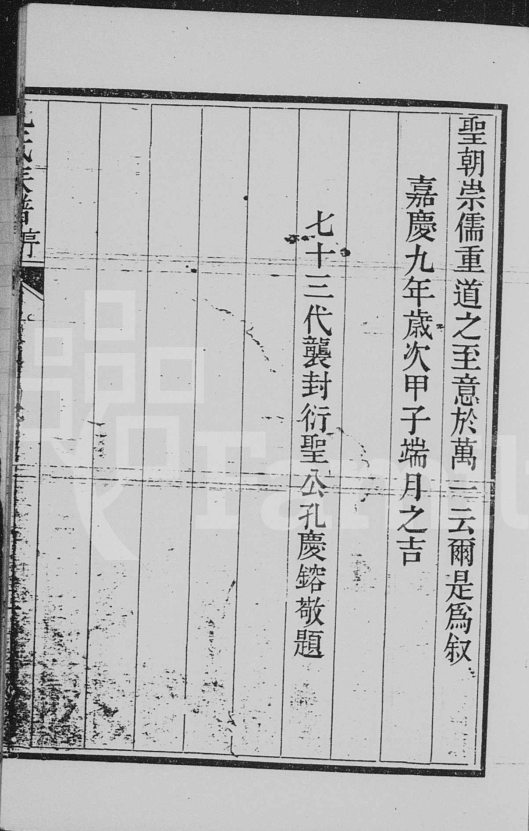 聖朝崇儒重道之至意於萬一云爾是爲叙
嘉慶九年歲次甲子端月之吉
七十三代襲封衍聖公孔慶鎔敬題